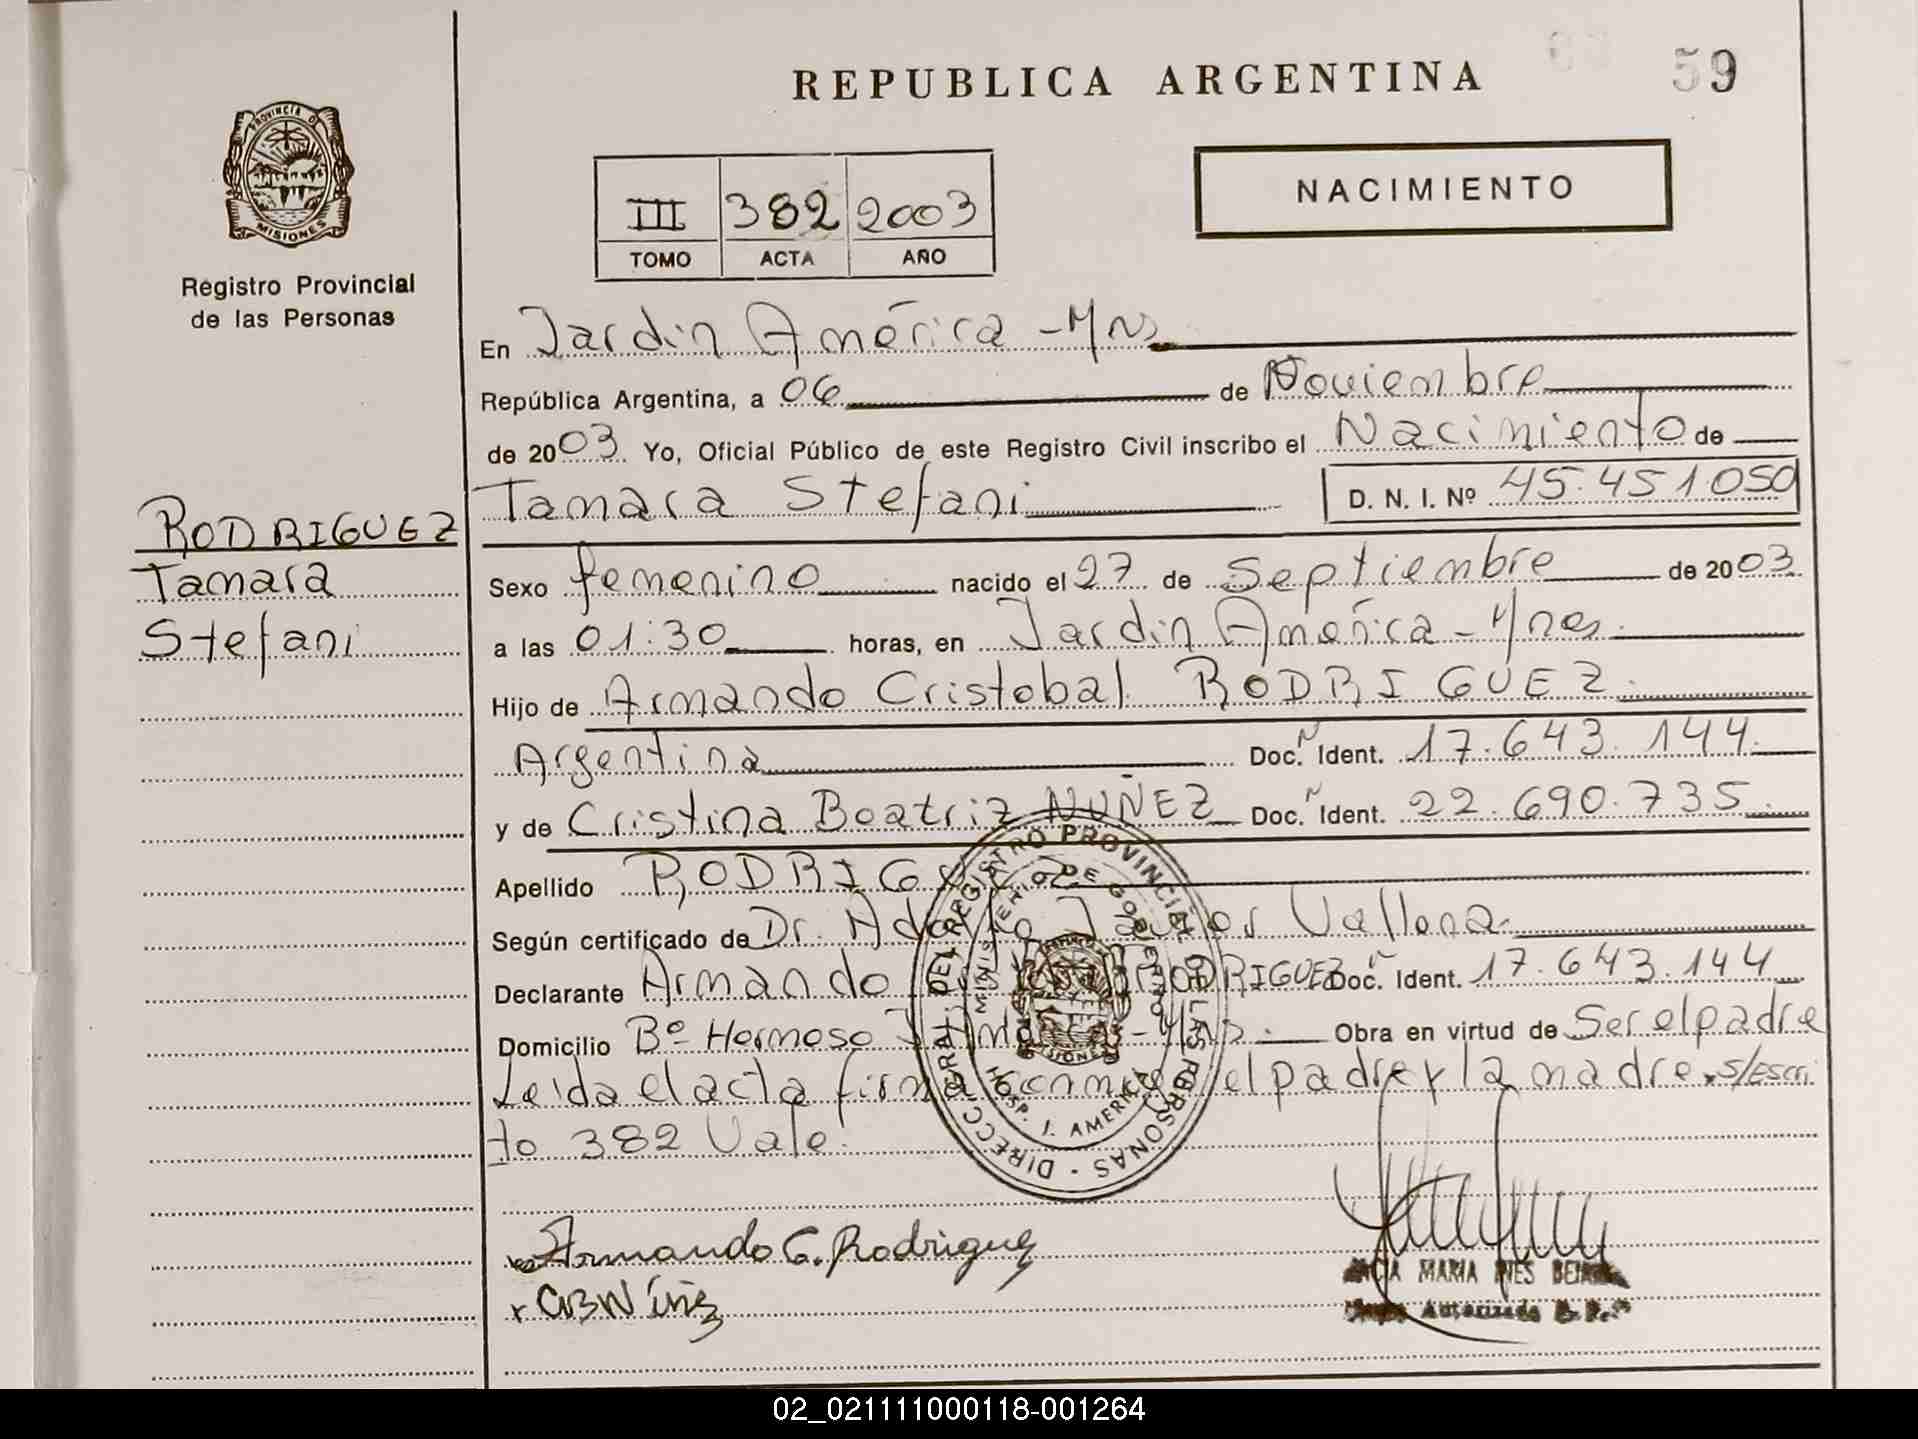 REPUBLICA ARGENTINA
59
PROVINCIA DE
MISIONES
Registro Provincial
de las Personas
III 382 2003
TOMO ACTA AÑO
NACIMIENTO
En Jardin América - Mns
República Argentina, a 06 de Noviembre
de 2003 Yo, Oficial Público de este Registro Civil inscribo el Nacimiento de
Tamara Stefani D. N. I. Nº 45.451.050
RODRIGUEZ
Tamara
Stefani
Sexo femenino nacido el 27 de Septiembre de 2003
a las 01:30 horas, en Jardin América - Mnes.
Hijo de Armando Cristobal RODRIGUEZ
Argentina Doc. N Ident. 17.643.144
y de Cristina Beatriz NUÑEZ Doc. N Ident. 22.690.735
Apellido RODRIGUEZ
Según certificado de Dr. Vallena
Declarante Armando RODRIGUEZ Doc. N Ident. 17.643.144
Domicilio Bº Hermoso J. América - Mns. Obra en virtud de Ser el padre
Leida el acta firma conmigo el padre y la madre. s/escri
to 382 Vale.
DIRECC. GRAL. DEL REGISTRO PROVINCIAL DE LAS PERSONAS
MINISTERIO DE GOBIERNO
HOSP. J. AMERICA
x Armando C. Rodriguez
x CBNúñez
MARIA INES
Autorizada
02_021111000118-001264